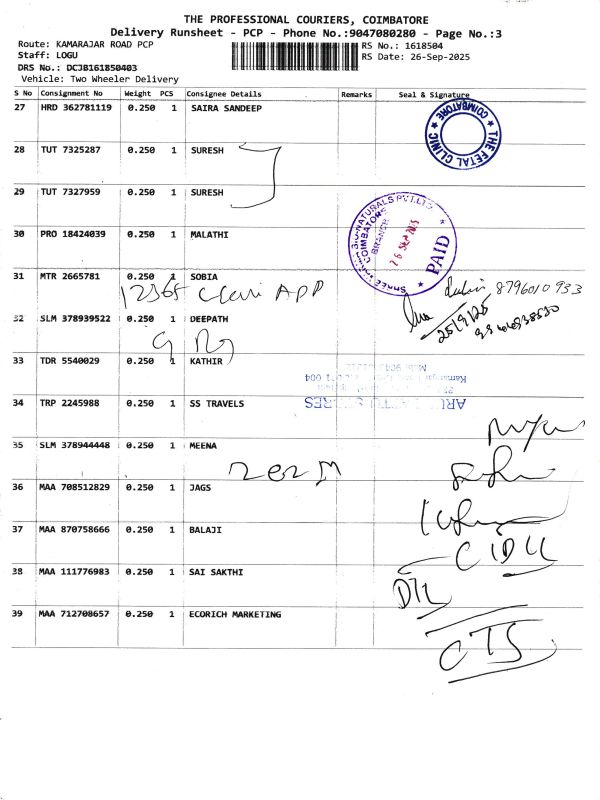 THE PROFESSIONAL COURIERS, COIMBATORE
Delivery Runsheet - PCP - Phone No.:9047080280 - Page No.:3
Route: KAMARAJAR ROAD PCP
Staff: LOGU
DRS No.: DCJB161850403
Vehicle: Two Wheeler Delivery
RS No.: 1618504
RS Date: 26-Sep-2025
S No Consignment No Weight PCS Consignee Details Remarks Seal & Signature
27 HRD 362781119 0.250 1 SAIRA SANDEEP
THE FETAL CLINIC ★ COIMBATORE ★
28 TUT 7325287 0.250 1 SURESH
29 TUT 7327959 0.250 1 SURESH
NATURALS PVT.LTD
COIMBATORE
BRANCH
26 SEP 2025
★ PAID ★
30 PRO 18424039 0.250 1 MALATHI
31 MTR 2665781 0.250 1 SOBIA
8796010933
25/9/25
32 SLM 378939522 0.250 1 DEEPATH
33 TDR 5540029 0.250 1 KATHIR
34 TRP 2245988 0.250 1 SS TRAVELS
35 SLM 378944448 0.250 1 MEENA
36 MAA 708512829 0.250 1 JAGS
37 MAA 870758666 0.250 1 BALAJI
38 MAA 111776983 0.250 1 SAI SAKTHI
39 MAA 712708657 0.250 1 ECORICH MARKETING
CTS